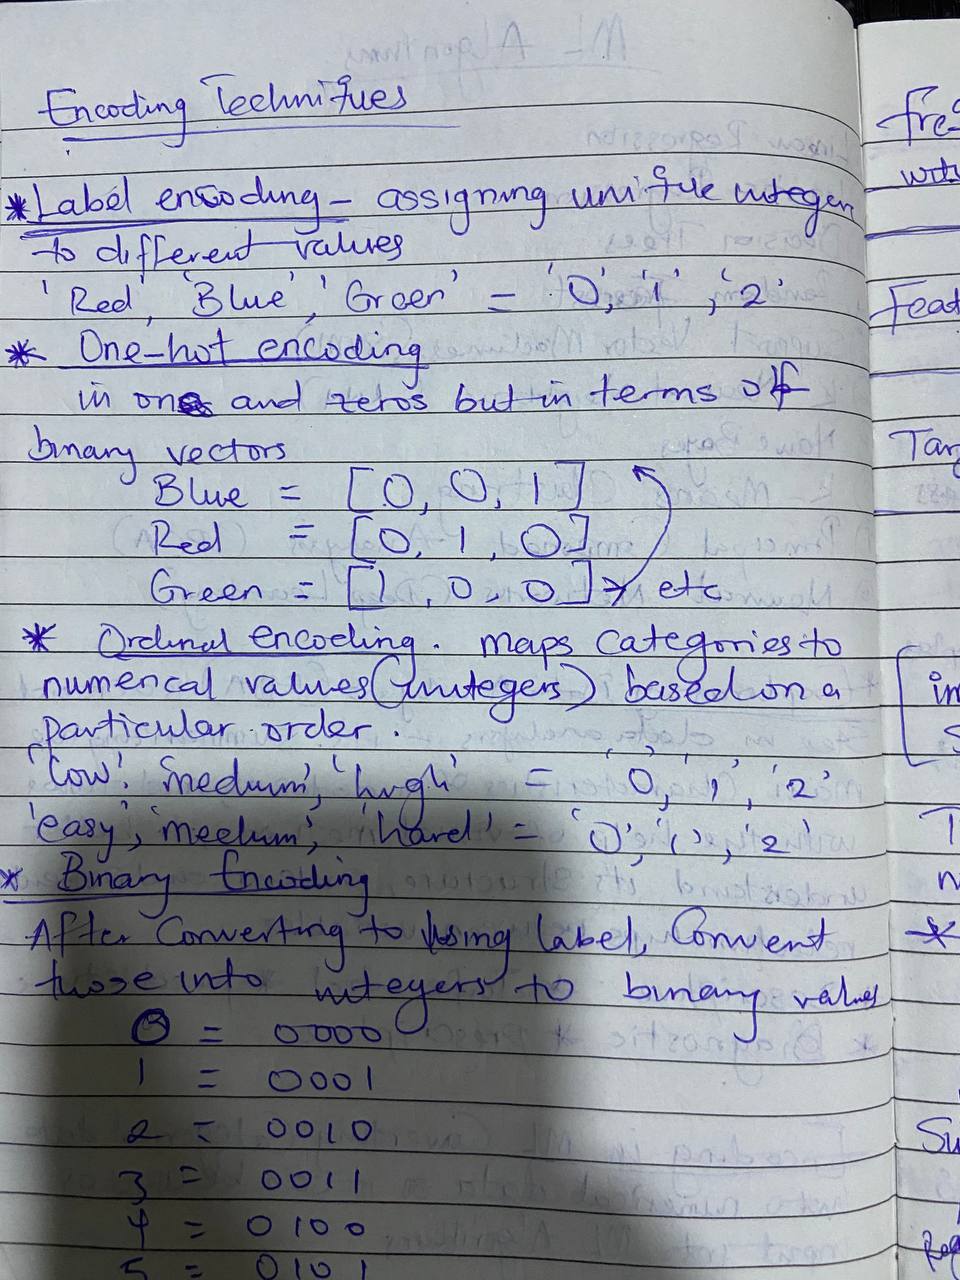 Encoding Techniques
* Label encoding - assigning unique integer
to different values
'Red', 'Blue', 'Green' = '0', '1', '2'
* One-hot encoding
in ones and zeros but in terms of
binary vectors
Blue = [0, 0, 1]
Red = [0, 1, 0]
Green = [1, 0, 0] → etc
* Ordinal encoding. maps categories to
numerical values (integers) based on a
particular order.
'low', 'medium', 'high' = '0', '1', '2'
'easy', 'medium', 'hard' = '0', '1', '2'
* Binary Encoding
After Converting to using label, Convert
those into integers to binary values
0 = 0000
1 = 0001
2 = 0010
3 = 0011
4 = 0100
5 = 0101
Fre
Feat
Tar
im
S
T
n
*
Su
Reg